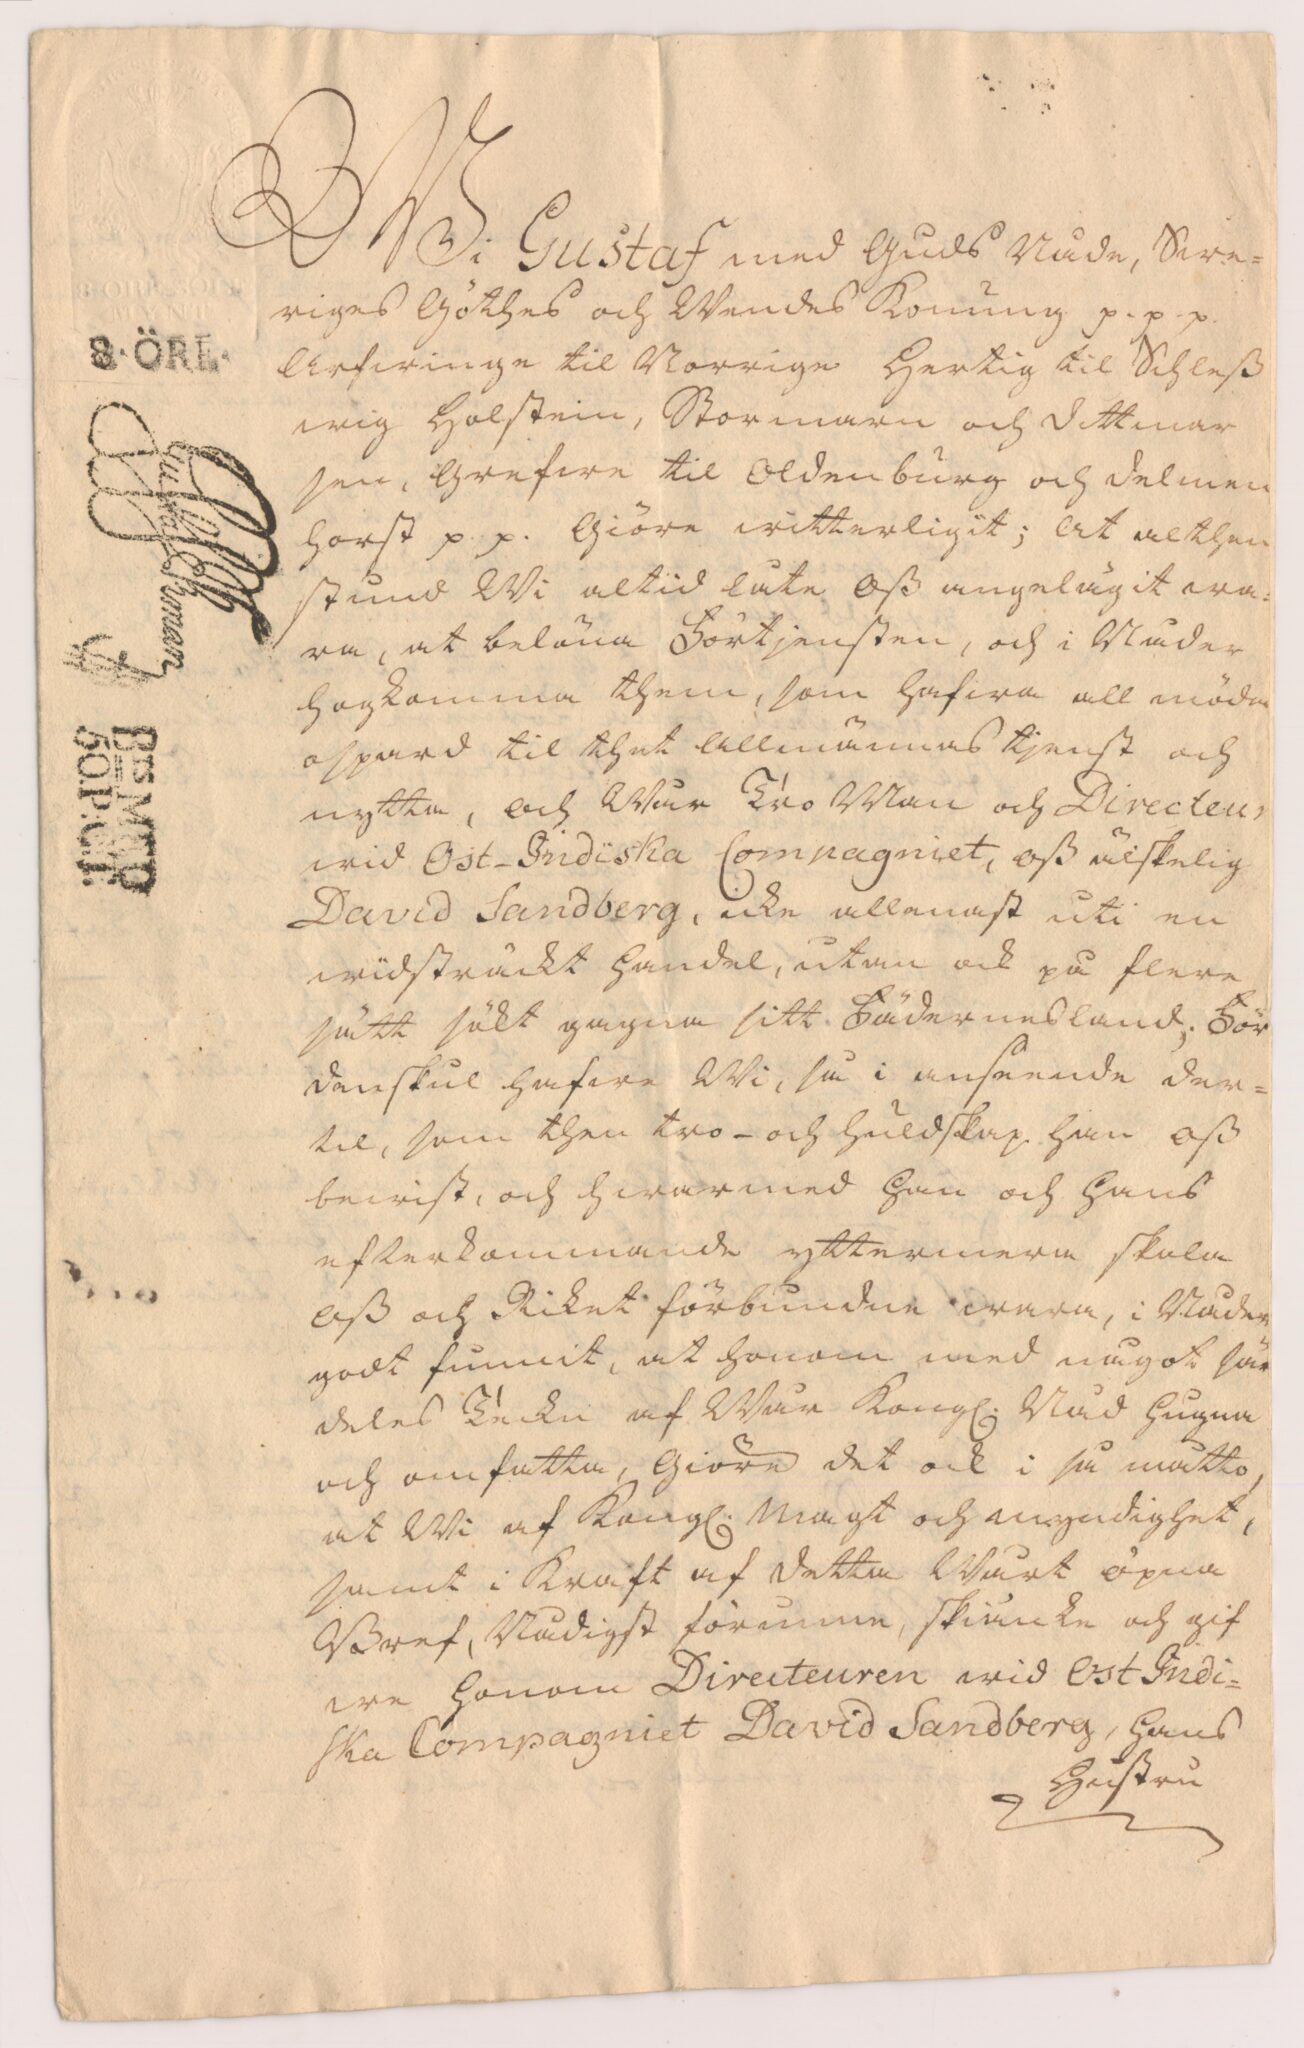 8 ÖRE SÖLF
MYNT
8·ÖRE·
Wi Gustaf med Guds Nåde, Swe=
riges Göthes och Wendes Konung p. p. p.
Arfwinge til Norrige Hertig til Schleß
wig Holstein, Stormarn och Dittmar
sen, Grefwe til Oldenburg och Delmen
horst p. p. Giöre witterligit; At althen
stund Wi altid låte Oß angelägit wa=
ra, at belöna Förtjensten, och i Nåder
hogkomma them, som hafwa all möda
ospard til thet Allmännas tjenst och
nytta, och Wår Tro Man och Directeur
wid Ost-Indiska Compagniet, oß älskelig
David Sandberg, icke allenast uti en
widsträckt handel, utan ock på flere
sätt sökt gagna sitt Fädernesland; För
denskul hafwe Wi, så i anseende der=
til, som then tro- och huldskap han oß
bewist, och hwarmed han och hans
efterkommande yttermera skola
oß och Riket förbundne wara, i Nåder
godt funnit, at honom med något sär
deles Tecken af Wår Kongl. Nåd hugna
och omfatta, Giöre det ock i så måtto,
at Wi af Kongl. Magt och myndighet,
samt i Kraft af detta Wårt öpna
Bref, Nådigst förunne, skiänke och gif
we honom Directeuren wid Ost Indi=
ska Compagniet David Sandberg, hans
Hustru